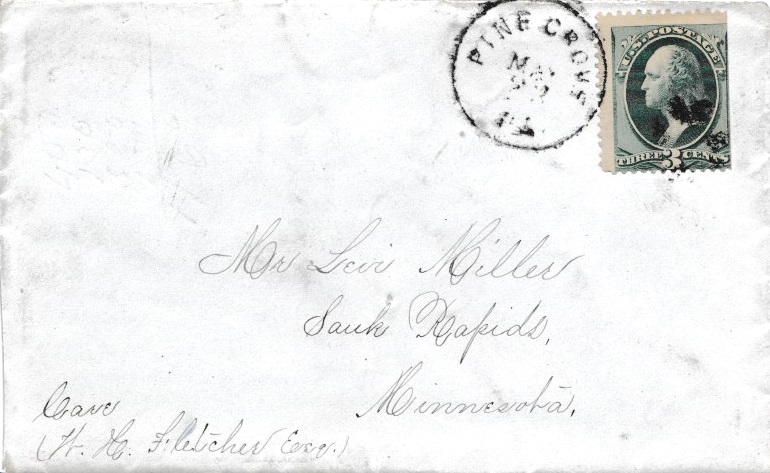 PINE GROVE
MAY
22
U.S. POSTAGE
THREE 3 CENTS
Mr Levi Miller
Sauk Rapids,
Minnesota,
Care
(H. C. Fletcher Esq.)